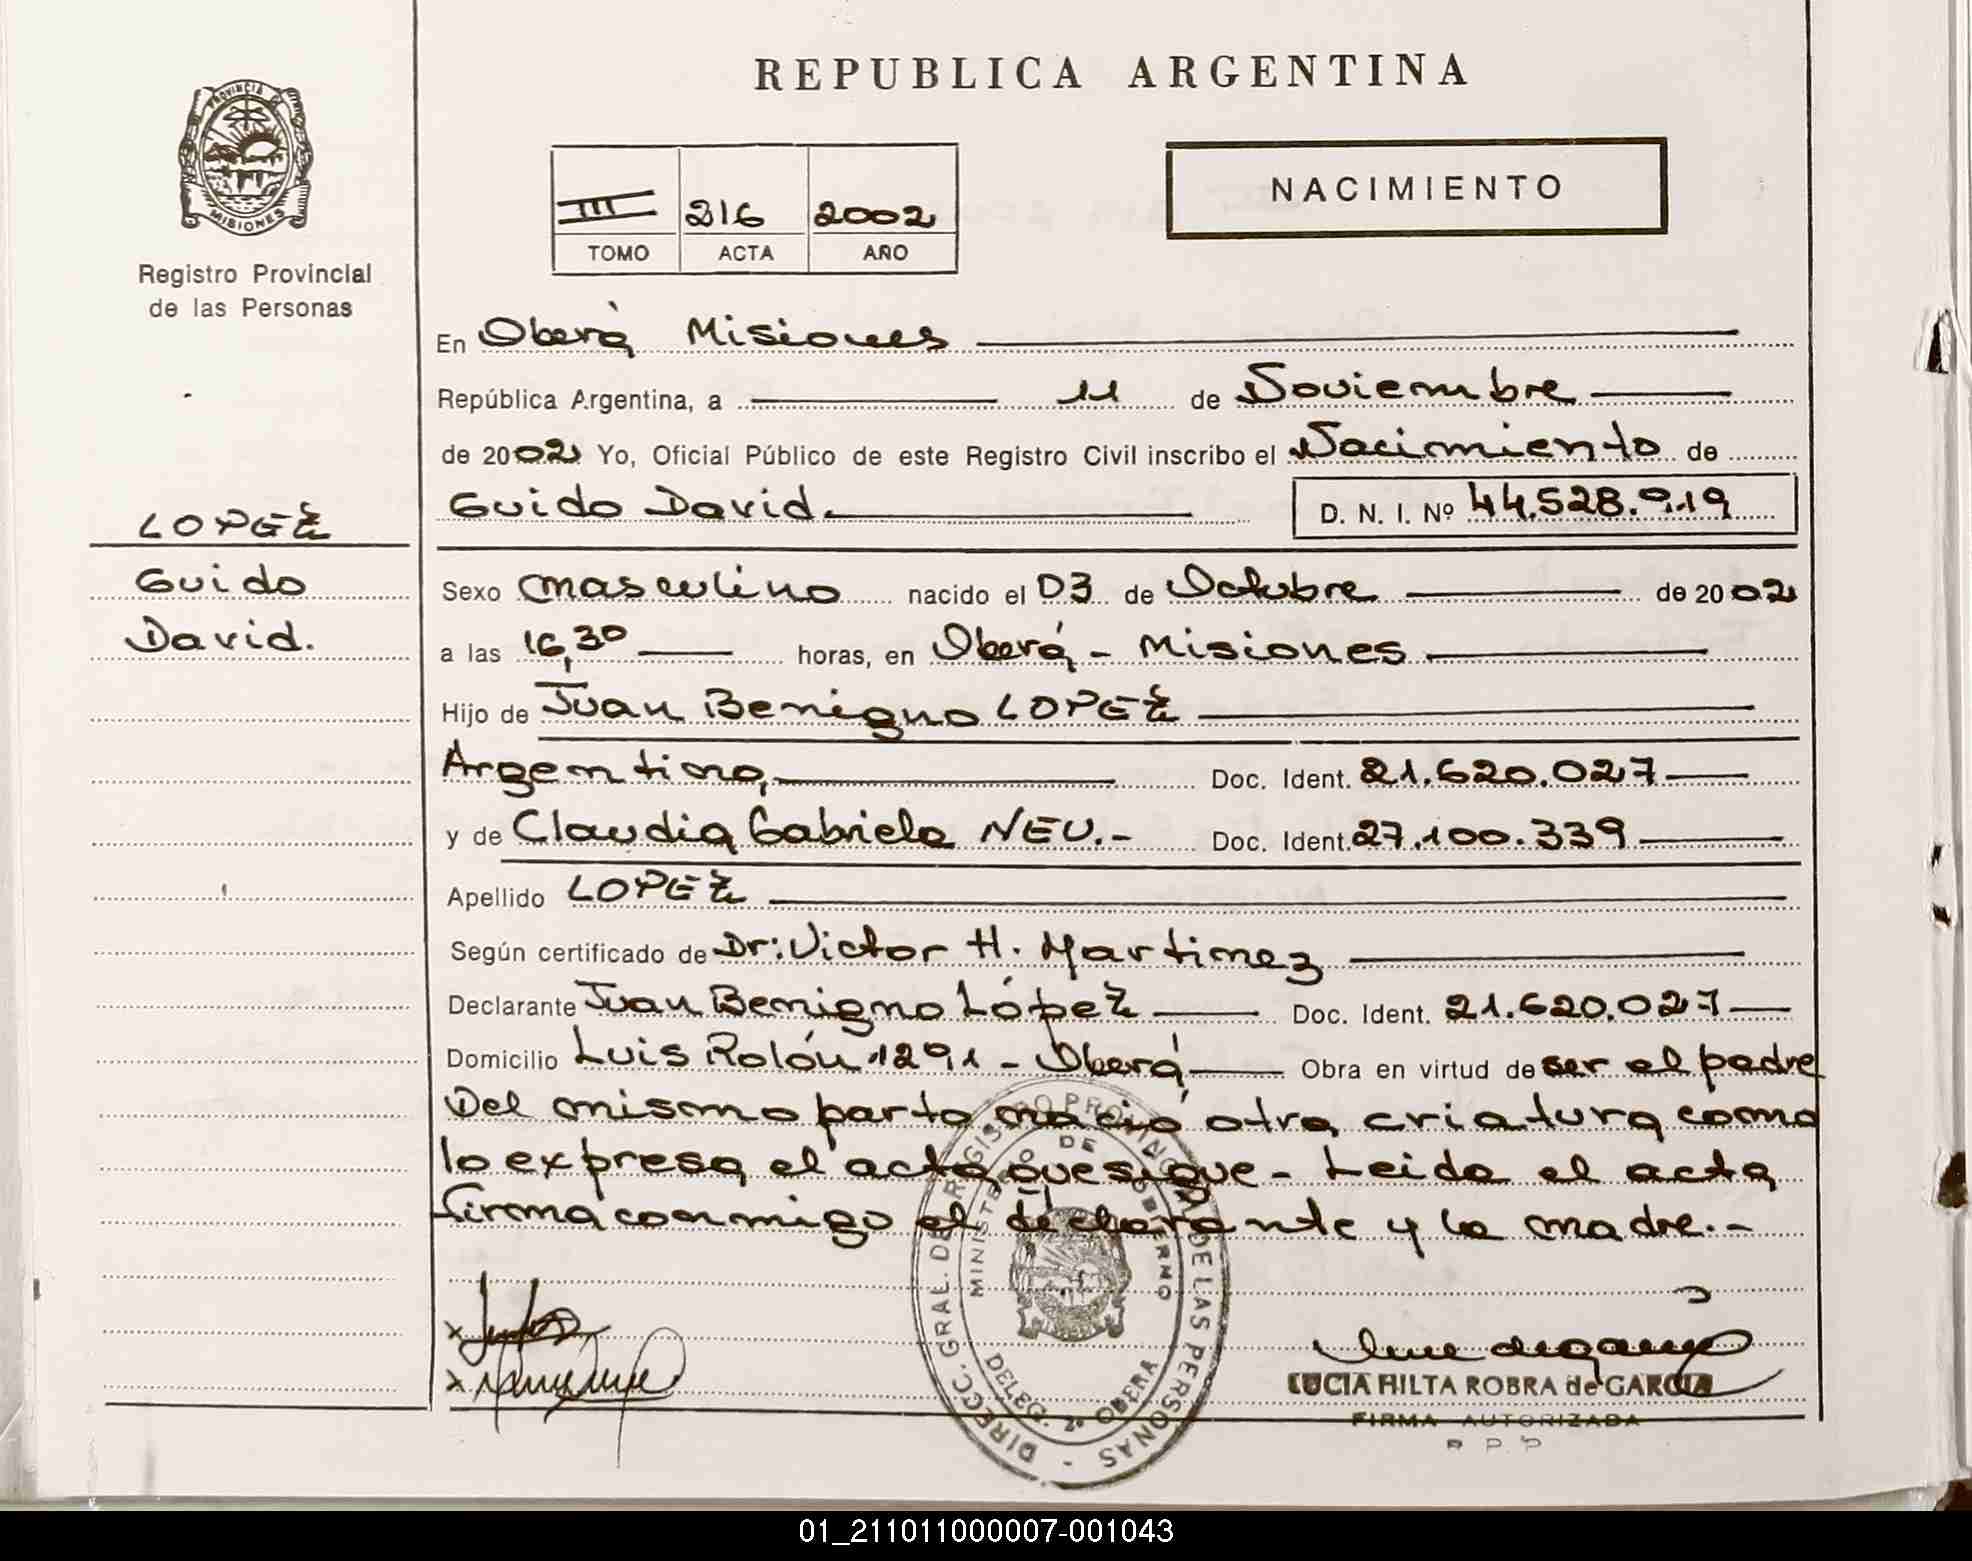 REPUBLICA ARGENTINA
PROVINCIA DE
MISIONES
Registro Provincial
de las Personas
III 216 2002
TOMO ACTA AÑO
NACIMIENTO
En Oberá Misiones
República Argentina, a 11 de Noviembre
de 2002 Yo, Oficial Público de este Registro Civil inscribo el Nacimiento de
Guido David D. N. I. Nº 44.528.919
LOPEZ
Guido
David.
Sexo masculino nacido el 03 de Octubre de 2002
a las 16,30 horas, en Oberá - Misiones
Hijo de Juan Benigno LOPEZ
Argentino, Doc. Ident. 21.620.027
y de Claudia Gabriela NEU.- Doc. Ident. 27.100.339
Apellido LOPEZ
Según certificado de Dr: Victor H. Martinez
Declarante Juan Benigno López Doc. Ident. 21.620.027
Domicilio Luis Rolón 1291 - Oberá Obra en virtud de ser el padre
Del mismo parto nació otra criatura como
lo expresa el acta que sigue - Leida el acta
firma conmigo el declarante y la madre.-
DIRECC. GRAL. DE REGISTRO PROVINCIAL DE LAS PERSONAS -
MINISTERIO DE GOBIERNO
DELEG. 2º OBERA
LUCIA HILTA ROBRA de GARCIA
FIRMA AUTORIZADA
R P P
01_211011000007-001043